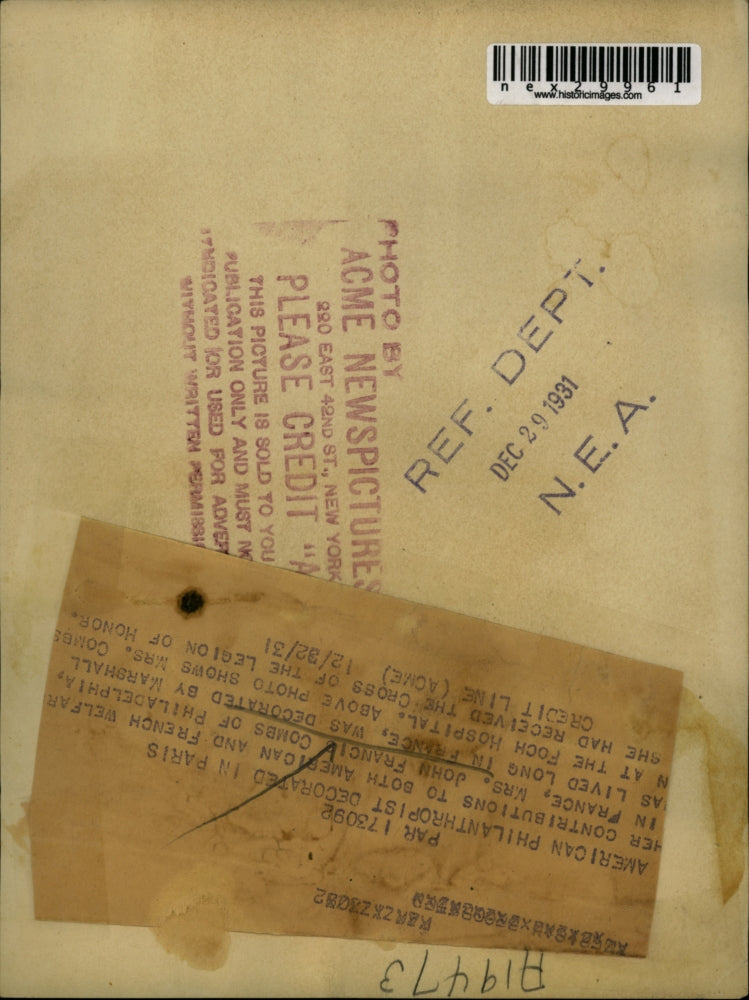 nex29961
www.historicimages.com
PHOTO BY
ACME NEWSPICTURES
220 EAST 42ND ST., NEW YORK
PLEASE CREDIT "A
THIS PICTURE IS SOLD TO YOU
PUBLICATION ONLY AND MUST N
USED FOR ADVER
WITHOUT WRITTEN PERMISSI
REF. DEPT.
DEC 29 1931
N. E. A.
PAR 173092
AMERICAN PHILANTHROPIST DECORATED IN PARIS
HER CONTRIBUTIONS TO BOTH AMERICAN AND FRENCH WELFAR
IN FRANCE, MRS. JOHN FRANCIS COMBS OF PHILADELPHIA,
AS LIVED LONG IN FRANCE, WAS DECORATED BY MARSHALL
N AT THE FOCH HOSPITAL. ABOVE PHOTO SHOWS MRS. COMBS
SHE HAD RECEIVED THE CROSS OF THE LEGION OF HONOR.
CREDIT LINE (ACME) 12/22/31
A19473